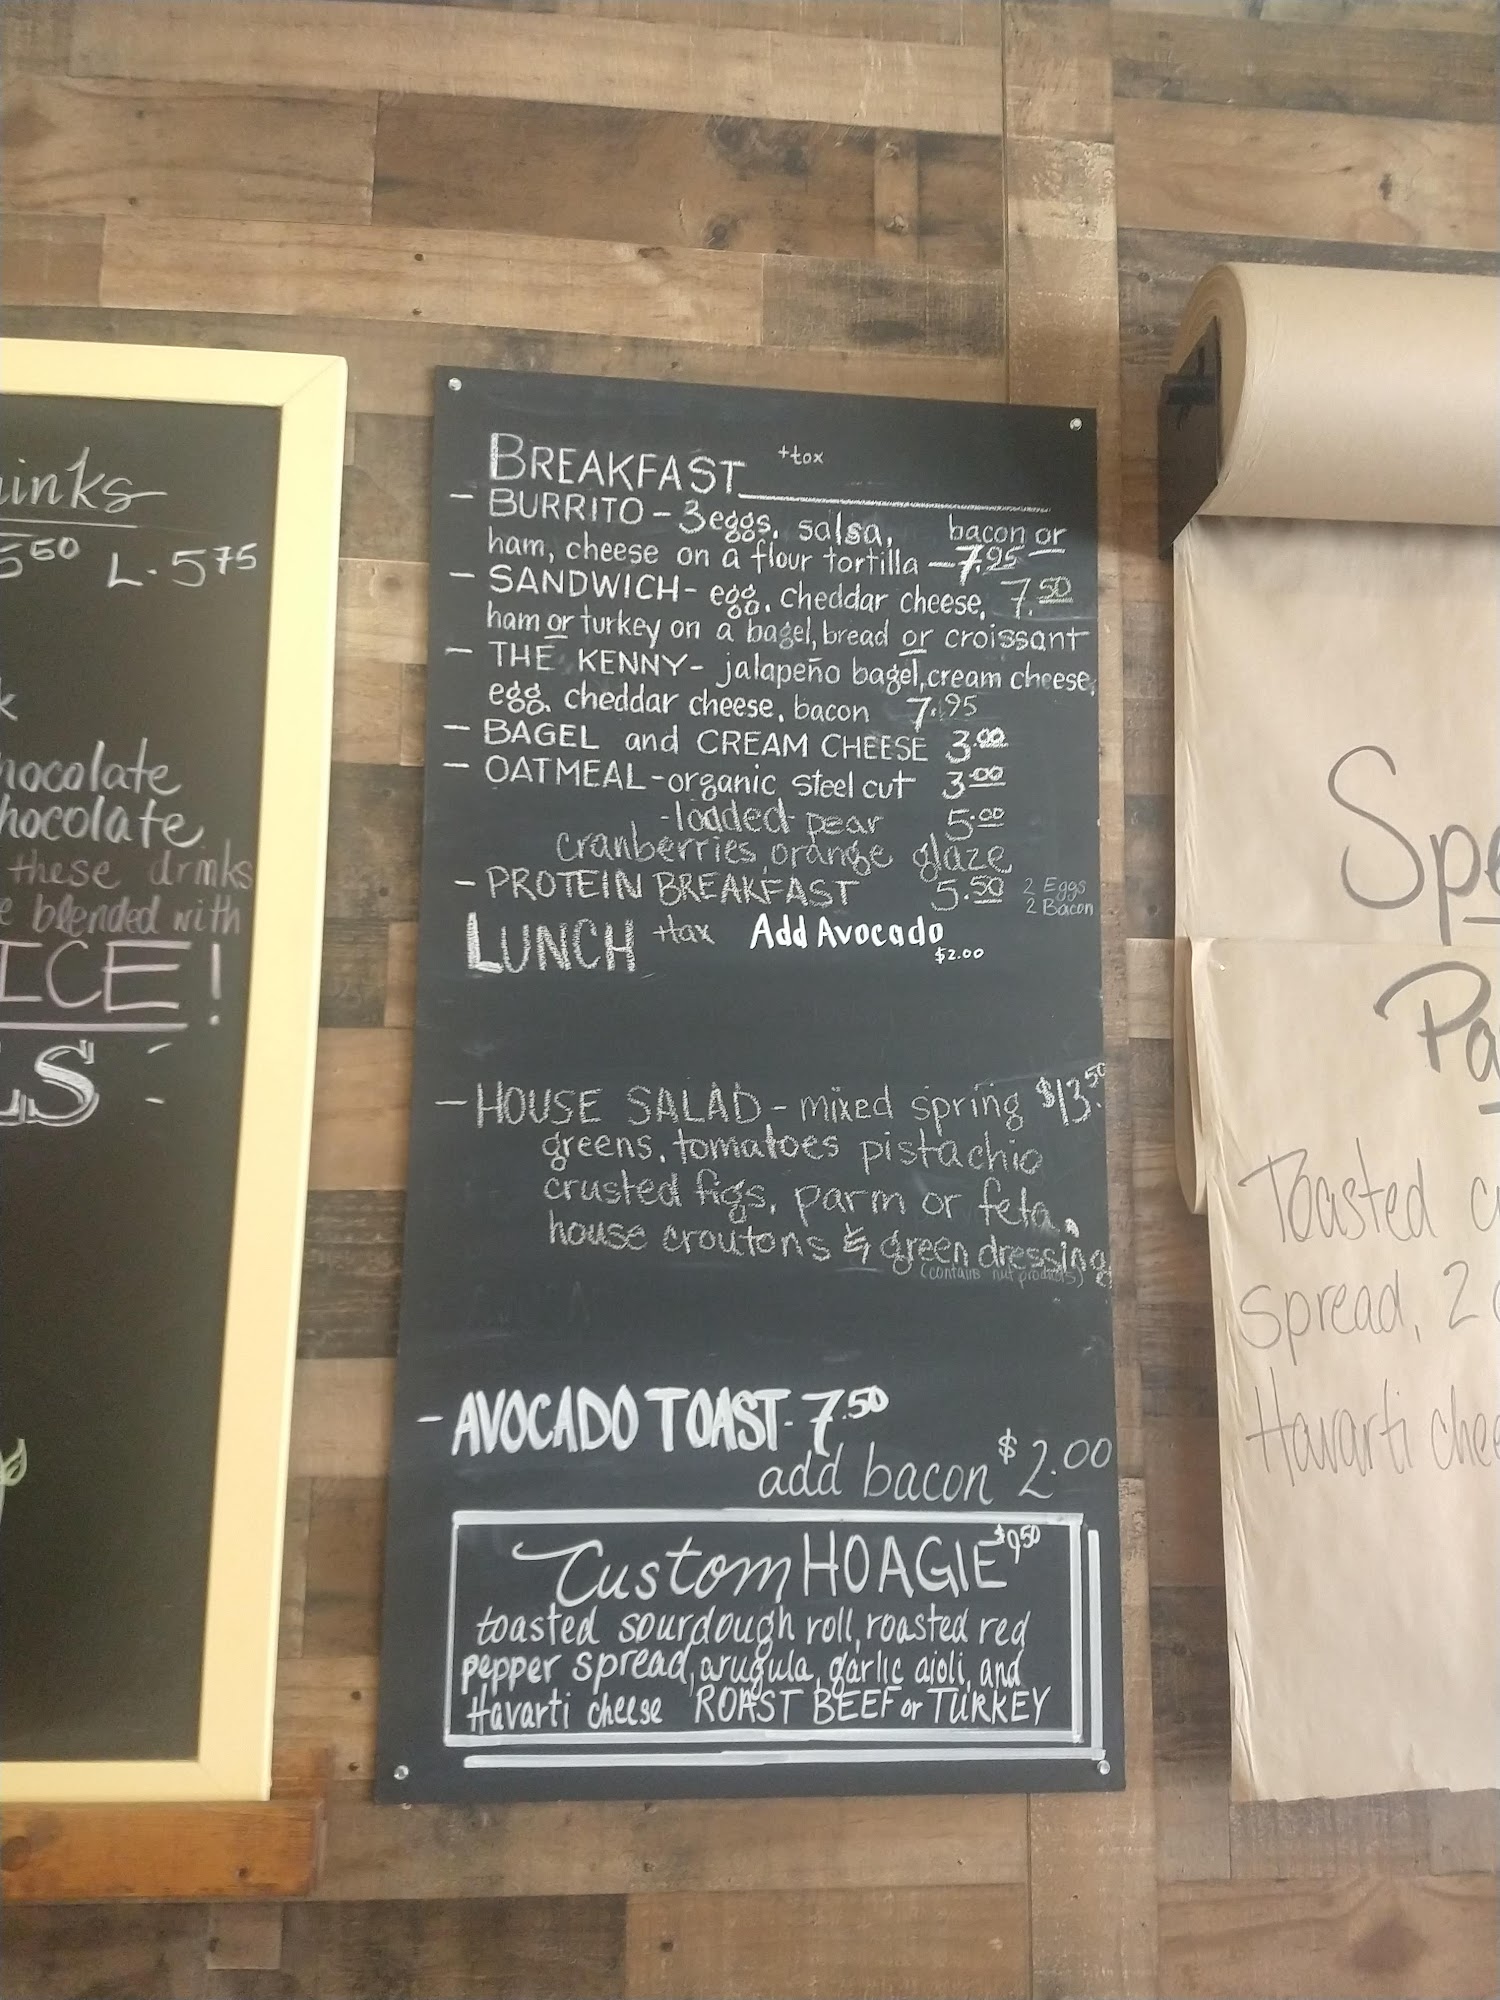 inks
5.50 L. 5.75
k
hocolate
hocolate
these drinks
e blended with
ICE!
LS -
BREAKFAST +tax
- BURRITO - 3 eggs, salsa, bacon or
ham, cheese on a flour tortilla - 7.95
- SANDWICH - egg, cheddar cheese, 7.50
ham or turkey on a bagel, bread or croissant
- THE KENNY - jalapeño bagel, cream cheese,
egg, cheddar cheese, bacon 7.95
- BAGEL and CREAM CHEESE 3.00
- OATMEAL - organic steel cut 3.00
- loaded - pear 5.00
cranberries, orange glaze
- PROTEIN BREAKFAST 5.50 2 Eggs
2 Bacon
LUNCH +tax Add Avocado
$2.00
- HOUSE SALAD - mixed spring $13.50
greens, tomatoes pistachio
crusted figs, parm or feta,
house croutons & green dressing
(contains nut products)
- AVOCADO TOAST - 7.50
add bacon $2.00
Custom HOAGIE $9.50
toasted sourdough roll, roasted red
pepper spread, arugula, garlic aioli, and
Havarti cheese ROAST BEEF or TURKEY
Spe
Pa
Toasted
spread, 2
Havarti chee